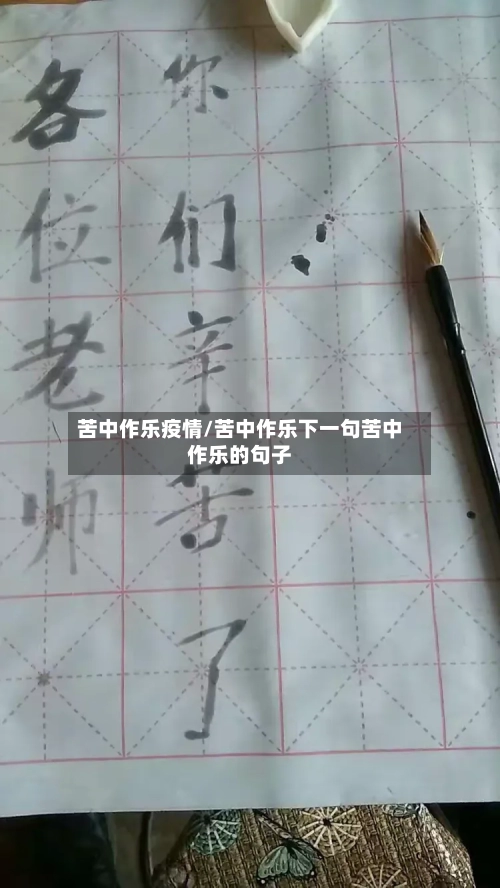 各位老师
你们辛苦了
苦中作乐疫情/苦中作乐下一句苦中
作乐的句子